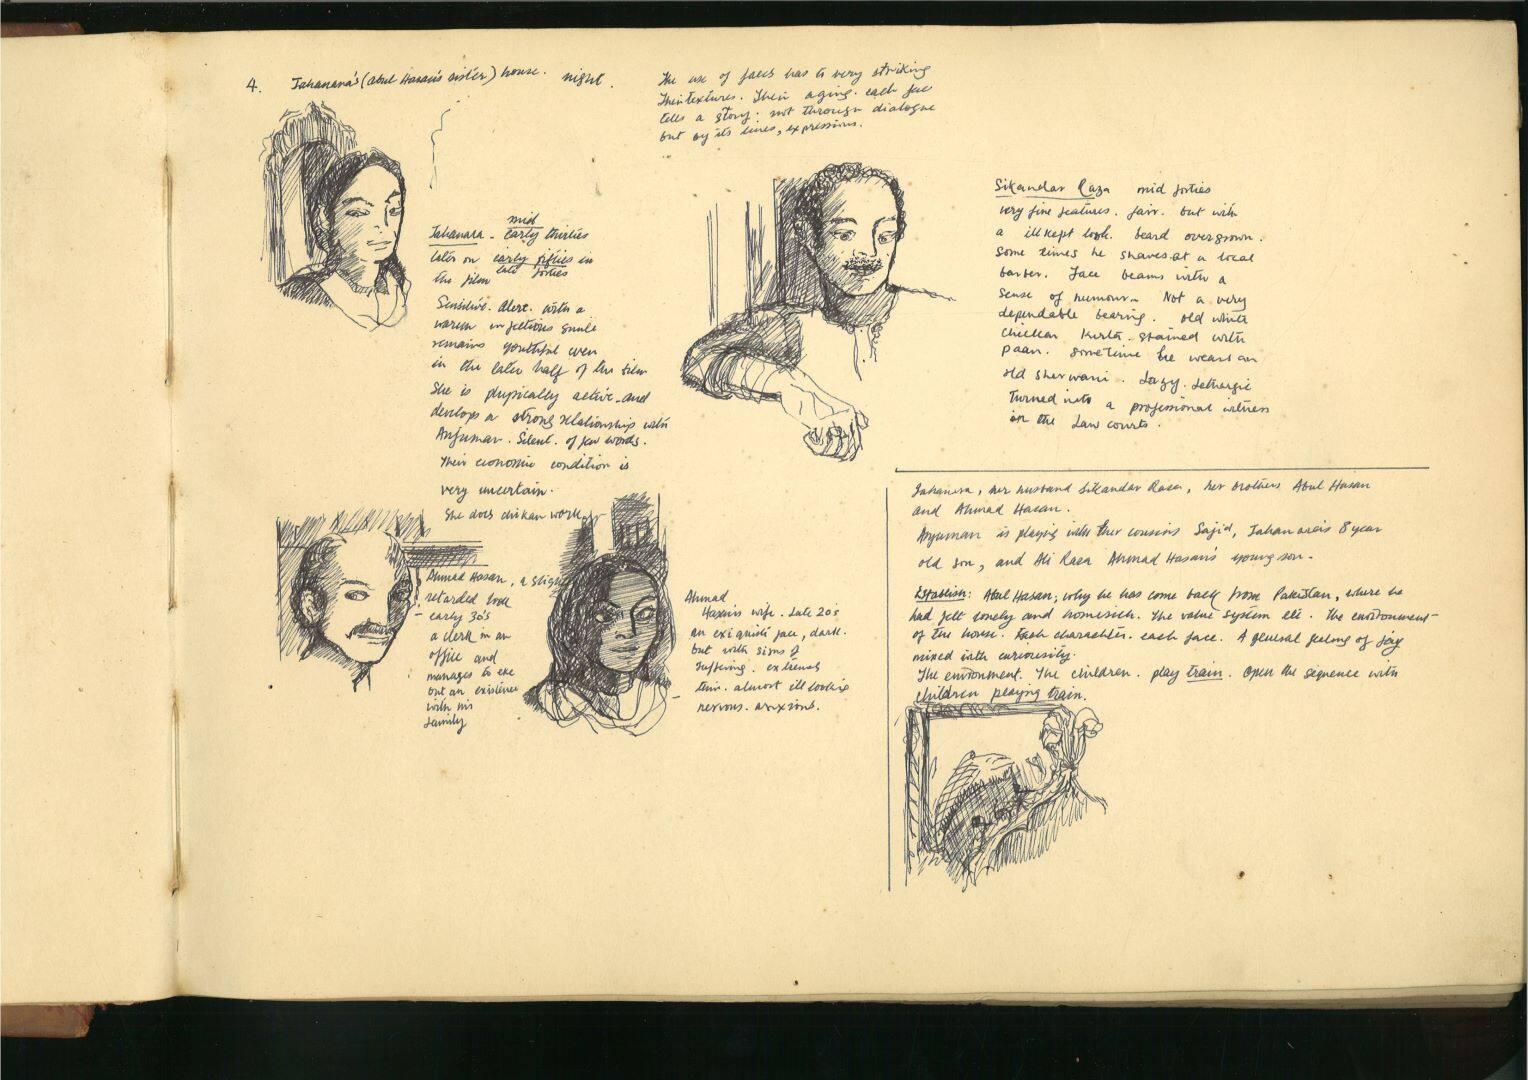 4. Jahanara's (Abul Hasan's sister) house. night.
The use of faces has to very striking
Their textures. Their aging. each face
tells a story: not through dialogue
but by its lines, expressions.
mid
Jahanara - early thirties
later on early fifties in
late forties
the film
Sensitive. Alert. with a
warm infectious smile
remains youthful even
in the later half of the film
She is physically active and
develops a strong relationship with
Anjuman. Silent. of few words.
Their economic condition is
very uncertain.
She does chikan work.
Sikandar Raza mid forties
very fine features. fair. but with
a illkept look. beard overgrown.
Some times he shaves at a local
barber. Face beams with a
sense of humour. Not a very
dependable bearing. old white
chickan kurta. stained with
paan. sometime he wears an
old sherwani. Lazy. Lethargic
Turned into a professional witness
in the Law courts.
Ahmad Hasan, a slight
retarded look
early 30's
a clerk in an
office and
manages to eke
out an existence
with his
family
Ahmad
Hasan's wife. Late 20's
an exquisite face, dark.
but with signs of
suffering. extremely
thin. almost ill looking
nervous. anxious.
Jahanara, her husband Sikandar Raza, her brothers Abul Hasan
and Ahmad Hasan.
Anjuman is playing with her cousins Sajid, Jahanara's 8 year
old son, and Ali Raza Ahmad Hasan's young son.
Establish: Abul Hasan; why he has come back from Pakistan, where he
had felt lonely and homesick. The value system etc. The environment
of the house. Each charachter. each face. A general feeling of joy
mixed with curiousity.
The environment. The children. play train. Open the sequence with
children playing train.